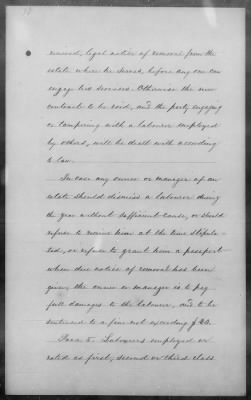 received, legal notice of removal from the
estate where he served, before any one can
engage his services. Otherwise the new
contract to be void, and the party engaging
or tampering with a labourer employed
by others, will be dealt with according
to law.
In case any owner or manager of an
estate should dismiss a labourer during
the year without sufficient cause, or should
refuse to receive him at the time stipula-
ted, or refuse to grant him a passport
when due notice of removal has been
given, the owner or manager is to pay
full damages to the labourer, and to be
sentenced to a fine not exceeding $20.
Para 5. Labourers employed or
rated as first, second or third class